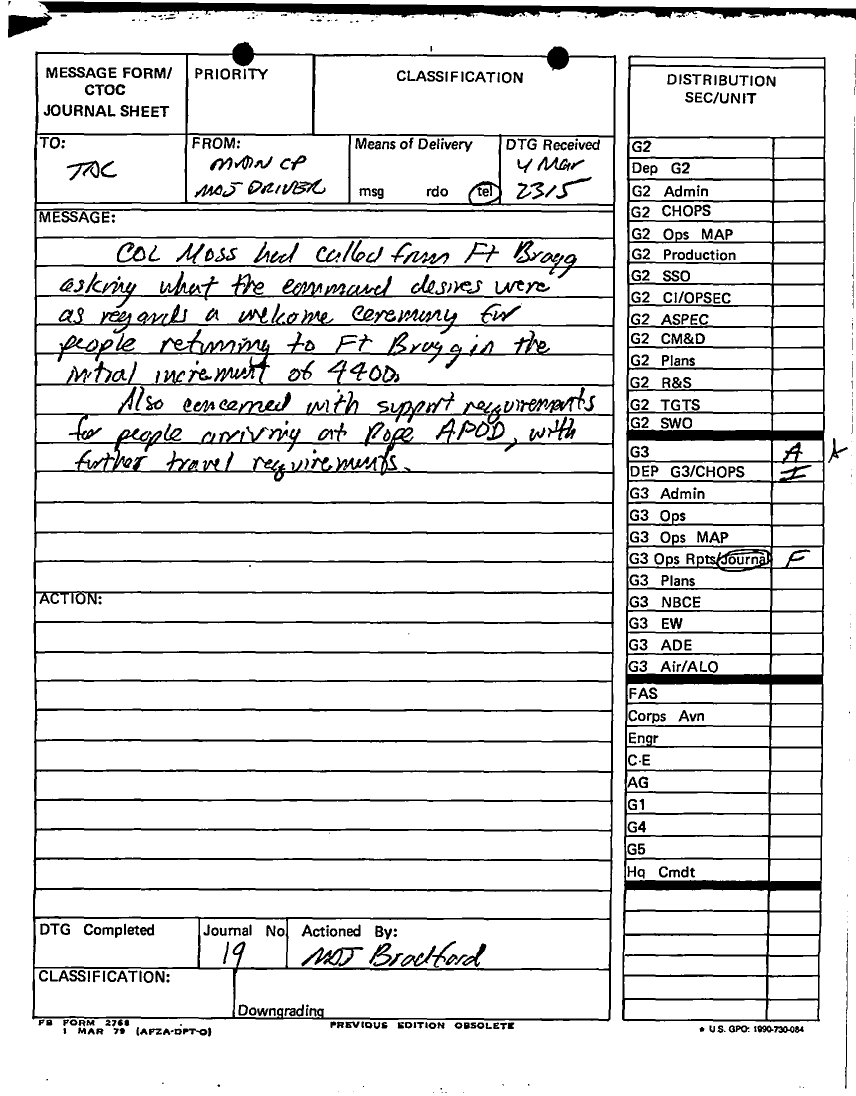 MESSAGE FORM/
CTOC
JOURNAL SHEET
PRIORITY
CLASSIFICATION
TO:
TAC
FROM:
MAIN CP
MAJ DRIVER
Means of Delivery
msg rdo tel
DTG Received
4 Mar
2315
MESSAGE:
COL Moss had called from Ft Bragg
asking what the command desires were
as regards a welcome ceremony for
people returning to Ft Bragg in the
initial increment of 4400.
Also concerned with support requirements
for people arriving at Pope APOD, with
further travel requirements.
ACTION:
DTG Completed
Journal No
19
Actioned By:
MAJ Bradford
CLASSIFICATION:
Downgrading
FB FORM 2768
1 MAR 79 (AFZA-DPT-O)
PREVIOUS EDITION OBSOLETE
DISTRIBUTION
SEC/UNIT
G2
Dep G2
G2 Admin
G2 CHOPS
G2 Ops MAP
G2 Production
G2 SSO
G2 CI/OPSEC
G2 ASPEC
G2 CM&D
G2 Plans
G2 R&S
G2 TGTS
G2 SWO
G3 A
DEP G3/CHOPS I
G3 Admin
G3 Ops
G3 Ops MAP
G3 Ops Rpts/Journal F
G3 Plans
G3 NBCE
G3 EW
G3 ADE
G3 Air/ALO
FAS
Corps Avn
Engr
C-E
AG
G1
G4
G5
Hq Cmdt
★ U.S. GPO: 1990-730-084